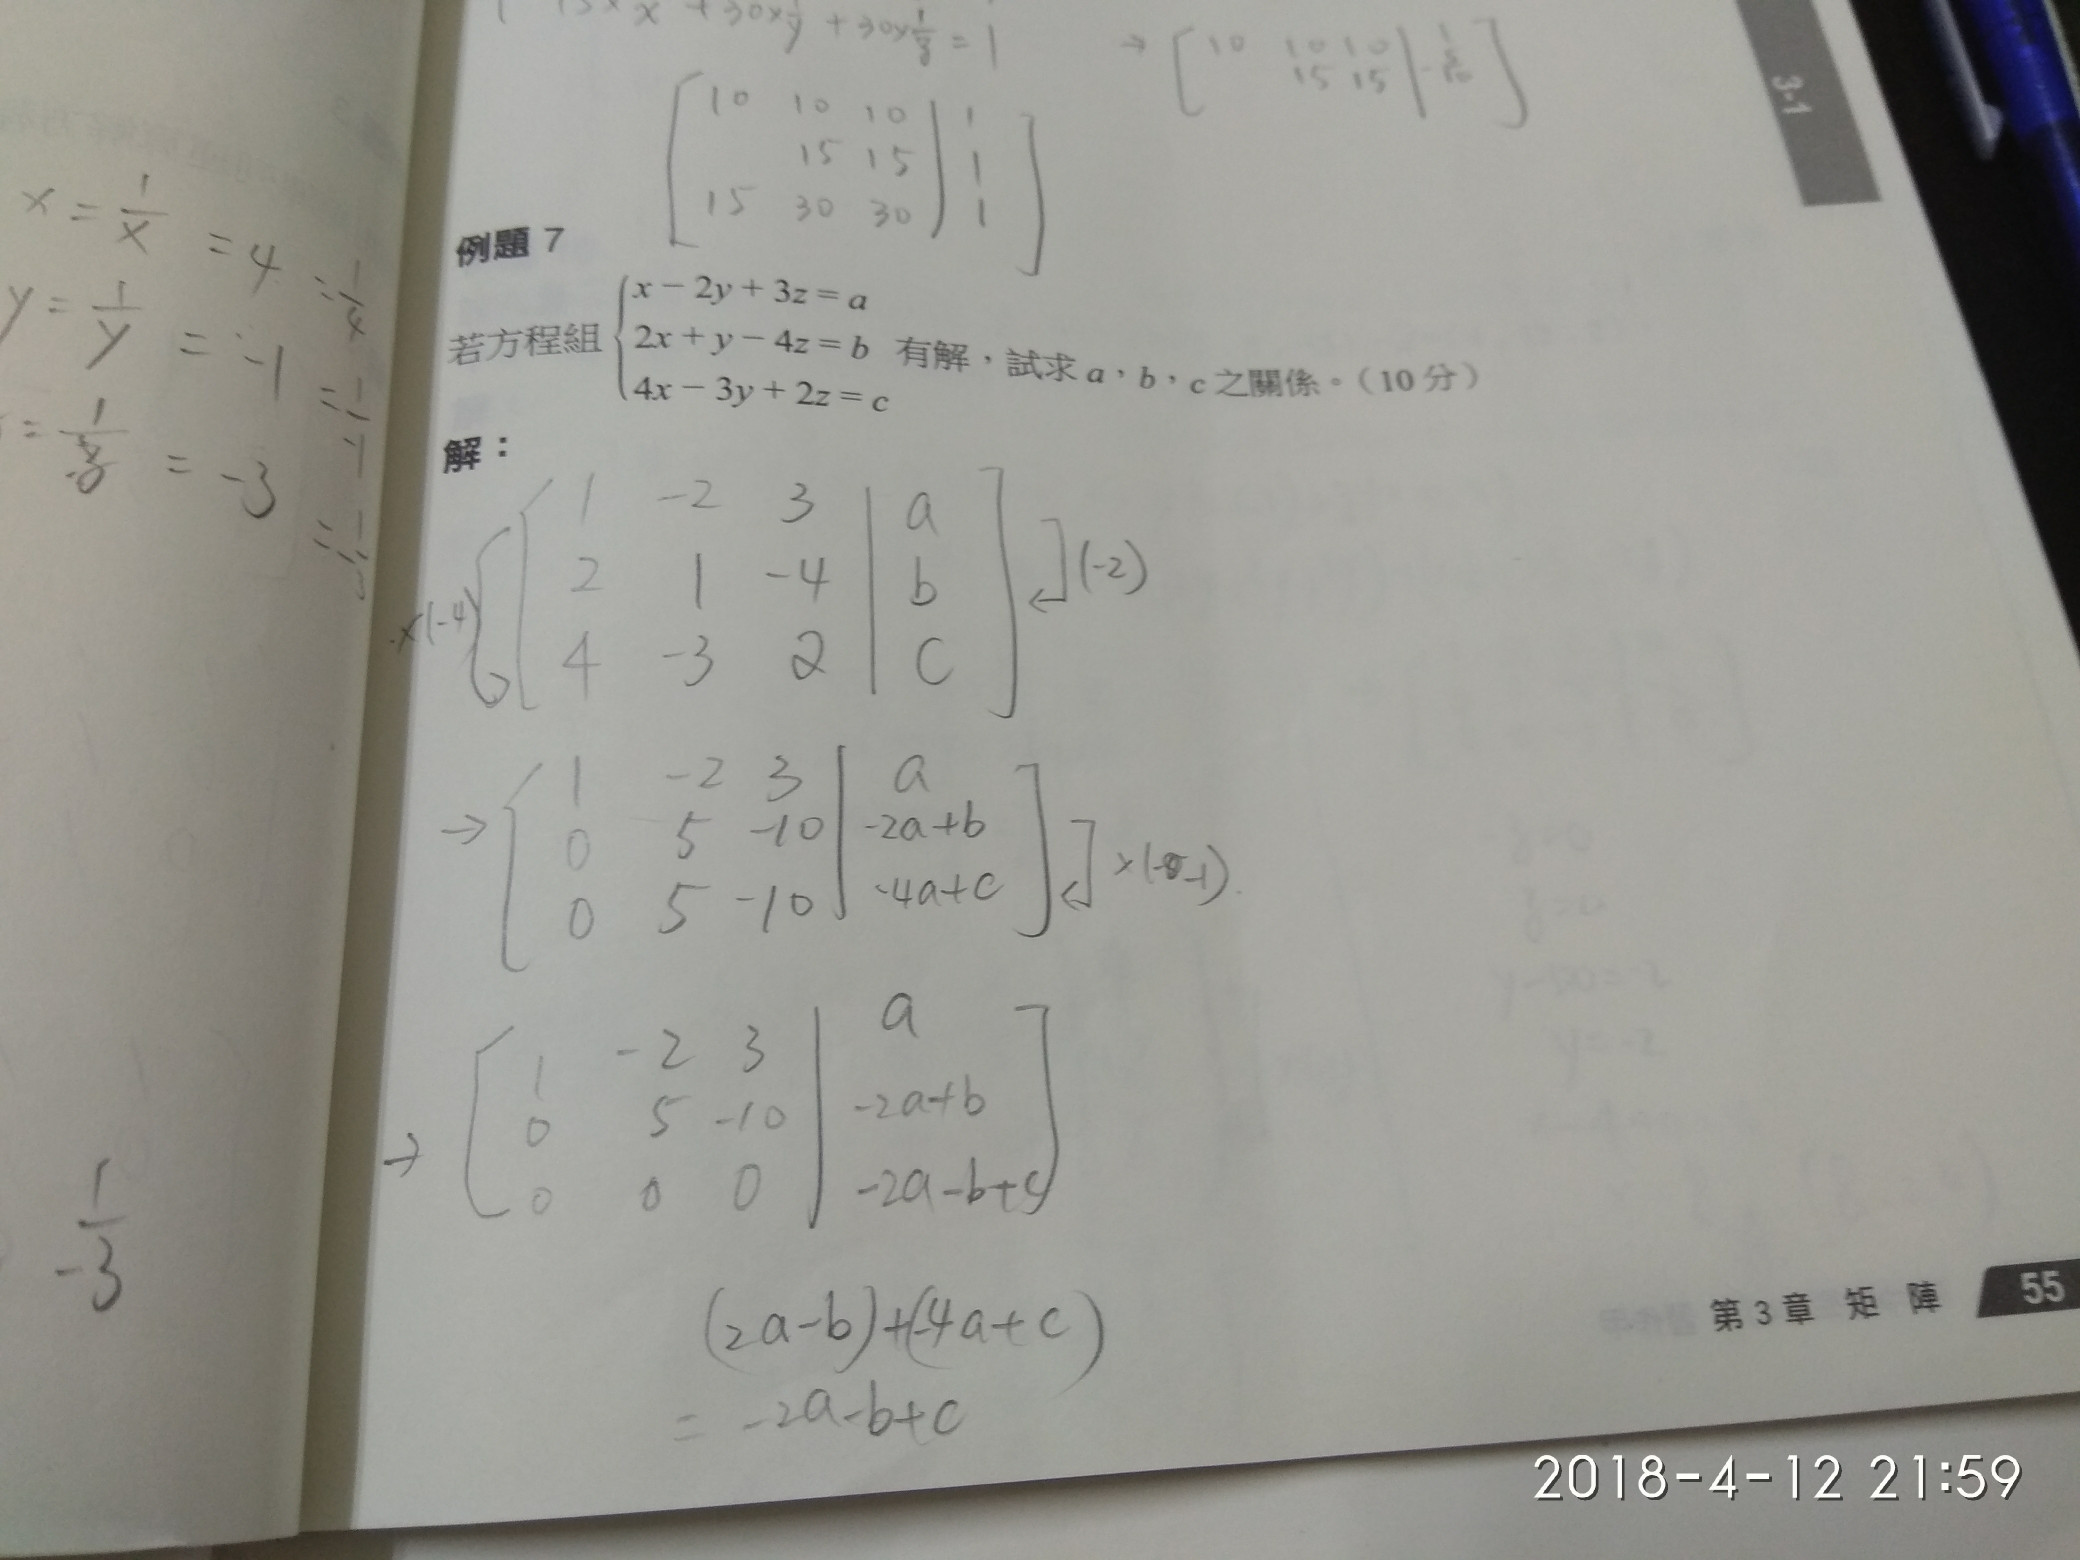 + 30×1/y + 30×1/z = 1
→ [10 10 10 |
15 15 |
[10 10 10 | 1
15 15 | 1
15 30 30 | 1]
3-1
x = 1/x = 4 = 1/4
y = 1/y = -1 = 1/-1
= 1/z = -3
1/-3
例題 7
若方程組
x − 2y + 3z = a
2x + y − 4z = b
4x − 3y + 2z = c
有解，試求 a，b，c 之關係。（10 分）
解：
[1 -2 3 | a
2 1 -4 | b
4 -3 2 | c]
(-2)
×(-4)
→ [1 -2 3 | a
0 5 -10 | -2a+b
0 5 -10 | -4a+c]
×(-1)
→ [1 -2 3 | a
0 5 -10 | -2a+b
0 0 0 | -2a-b+c]
(2a-b)+(-4a+c)
= -2a-b+c
第 3 章 矩 陣 55
2018-4-12 21:59